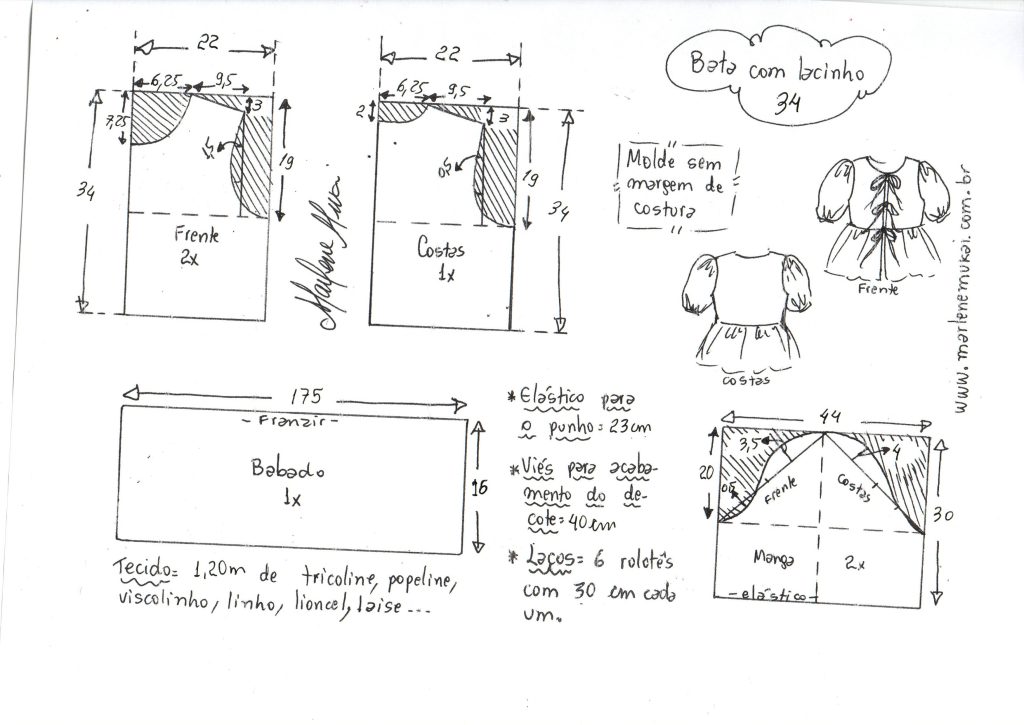 22
6,25 9,5
3
7,25
34
19
Frente
2x
22
6,25 9,5
2
3
19
34
Costas
1x
Bata com lacinho
34
Molde sem
margem de
costura
Frente
Costas
www.marlenemukai.com.br
175
- Franzir -
Babado
1x
16
Tecido= 1,20m de tricoline, popeline,
viscolinho, linho, lioncel, laise ...
* Elástico para
o punho= 23cm
* Viés para acaba-
mento do de-
cote= 40cm
* Laços= 6 rolotês
com 30 cm cada
um.
44
3,5
4
20
Frente
Costas
30
Manga 2x
- elástico -